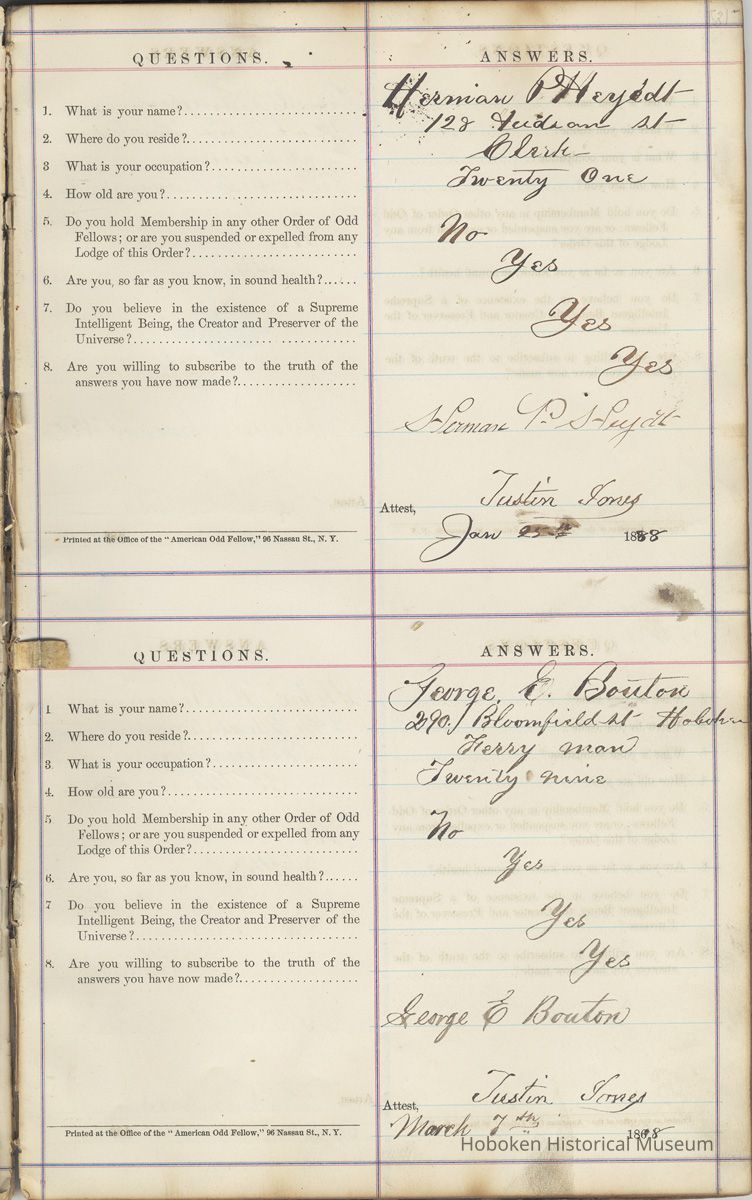 QUESTIONS.
ANSWERS.
1. What is your name?
Herman P Heydt
2. Where do you reside?
128 Hudson st
3 What is your occupation?
Clerk
4. How old are you?
Twenty One
5. Do you hold Membership in any other Order of Odd
Fellows; or are you suspended or expelled from any
Lodge of this Order?
No
6. Are you, so far as you know, in sound health?
Yes
7. Do you believe in the existence of a Supreme
Intelligent Being, the Creator and Preserver of the
Universe?
Yes
8. Are you willing to subscribe to the truth of the
answers you have now made?
Yes
Herman P. Heydt
Attest, Justin Jones
Jan 25th 1888
Printed at the Office of the "American Odd Fellow," 96 Nassau St., N. Y.
QUESTIONS.
ANSWERS.
1 What is your name?
George, E. Bouton
2. Where do you reside?
290 Bloomfield st Hoboken
3 What is your occupation?
Ferry man
4. How old are you?
Twenty nine
5 Do you hold Membership in any other Order of Odd
Fellows; or are you suspended or expelled from any
Lodge of this Order?
No
6. Are you, so far as you know, in sound health?
Yes
7 Do you believe in the existence of a Supreme
Intelligent Being, the Creator and Preserver of the
Universe?
Yes
8. Are you willing to subscribe to the truth of the
answers you have now made?
Yes
George E Bouton
Attest, Justin Jones
March 7th
Printed at the Office of the "American Odd Fellow," 96 Nassau St., N. Y.
Hoboken Historical Museum